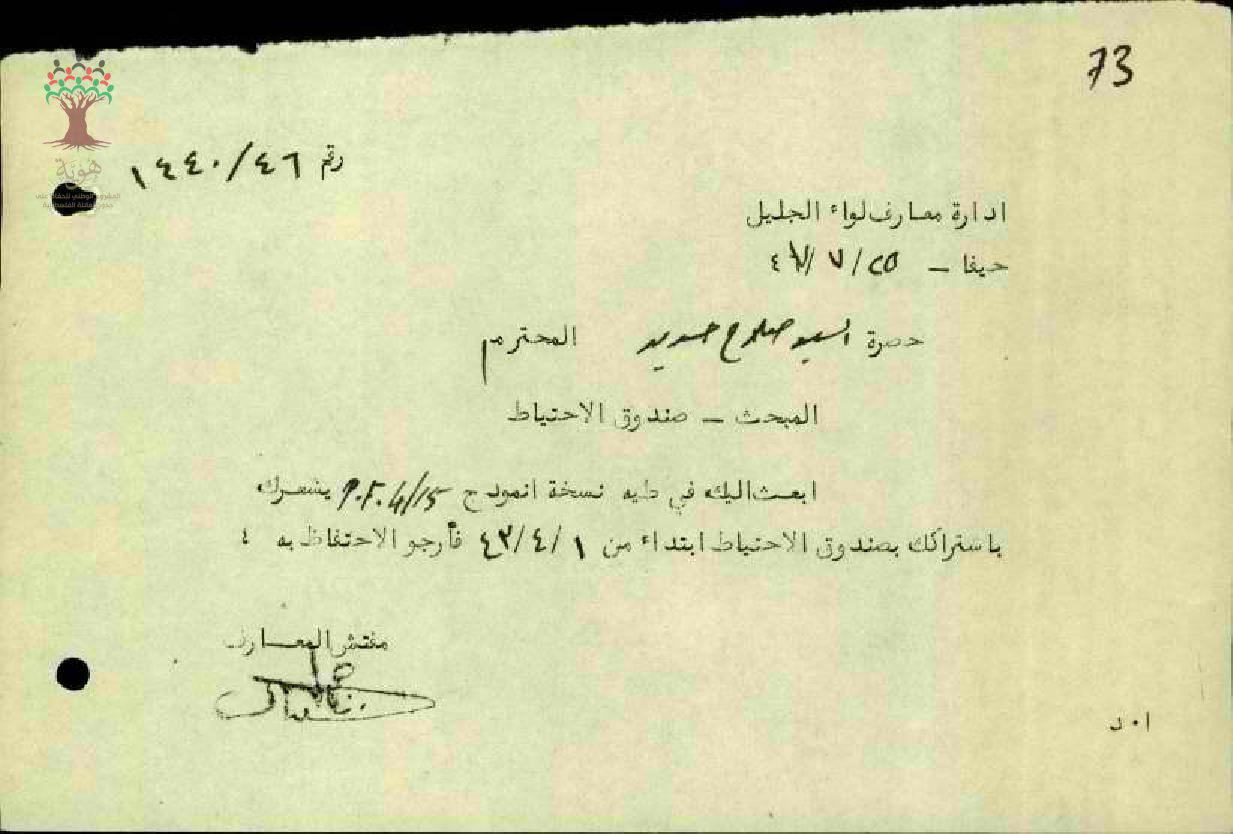 73
رقم ١٤٤٠/٤٦
هوية
ادارة معارف لواء الجليل
حيفا – ٢٥/٧/
حضرة السيد صلاح المحترم
المبحث – صندوق الاحتياط
ابعث اليك في طيه نسخة انموذج P.F. 4/15 يشعرك
باشتراكك بصندوق الاحتياط ابتداء من ٤٣/٤/١ فأرجو الاحتفاظ به ؛
مفتش المعارف
ا٠د